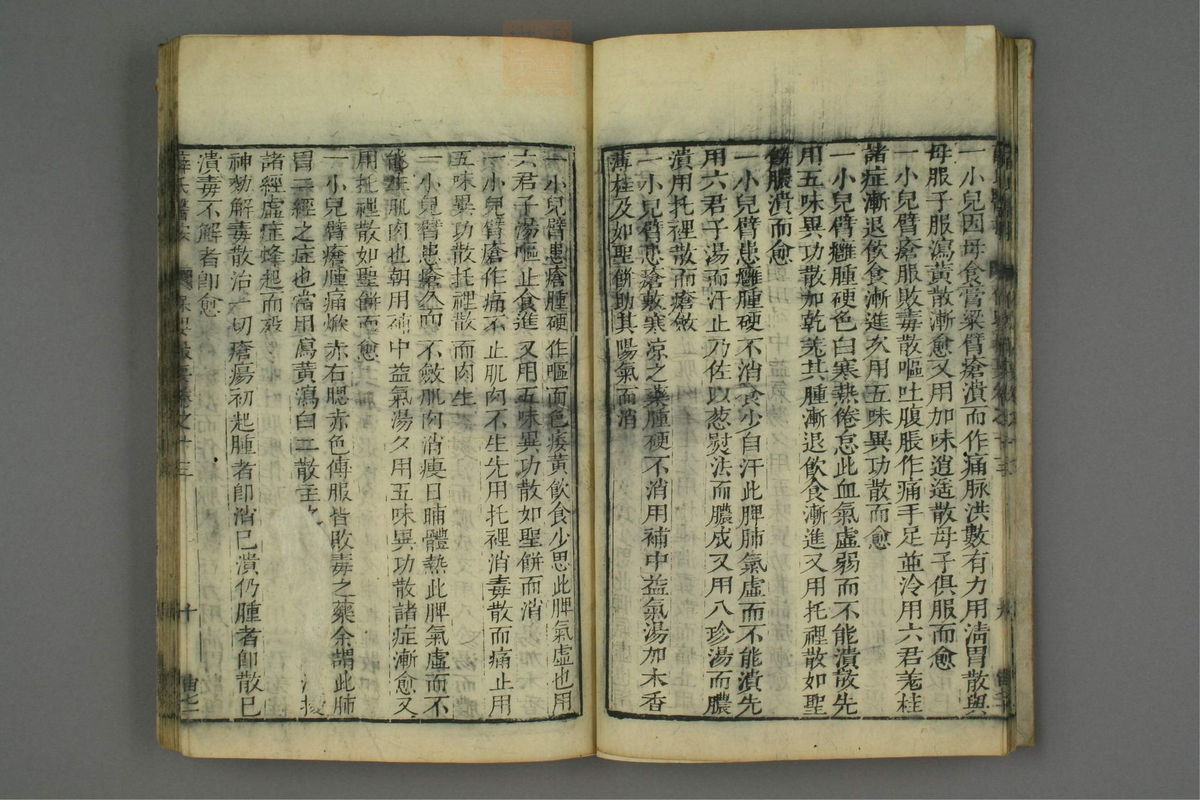 一小兒因母食膏粱臂瘡潰而作痛脉洪數有力用清胃散與
母服子服瀉黃散漸愈又用加味逍遙散母子俱服而愈
一小兒臂瘡服敗毒散嘔吐腹脹作痛手足並冷用六君羗桂
諸症漸退飲食漸進次用五味異功散而愈
一小兒臂癰腫硬色白寒熱倦怠此血氣虛弱而不能潰散先
用五味異功散加乾羗其腫漸退飲食漸進又用托裡散如聖
餅膿潰而愈
一小兒臂患癰腫硬不消食少自汗此脾肺氣虛而不能潰先
用六君子湯而汗止乃佐以葱熨法而膿成又用八珍湯而膿
潰用托裡散而瘡斂
一小兒臂患瘡敷寒凉之藥腫硬不消用補中益氣湯加木香
薄桂及如聖餅助其陽氣而消
一小兒臂患瘡腫硬作嘔而色痿黃飲食少思此脾氣虛也用
六君子湯嘔止食進又用五味異功散如聖餅而消
一小兒臂瘡作痛不止肌肉不生先用托裡消毒散而痛止用
五味異功散托裡散而肉生
一小兒臂患瘡久而不斂肌肉消瘦日晡體熱此脾氣虛而不
能生肌肉也朝用補中益氣湯夕用五味異功散諸症漸愈又
用托裡散如聖餅而愈
一小兒臂瘡腫痛焮赤右腮赤色傳服皆敗毒之藥余謂此肺
胃二經之症也當用瀉黃瀉白二散主
諸經虛症蜂起而歿
神効解毒散治一切瘡瘍初起腫者卽消已潰仍腫者卽散已
潰毒不解者卽愈
薛氏醫案 保嬰 卷之十三 十